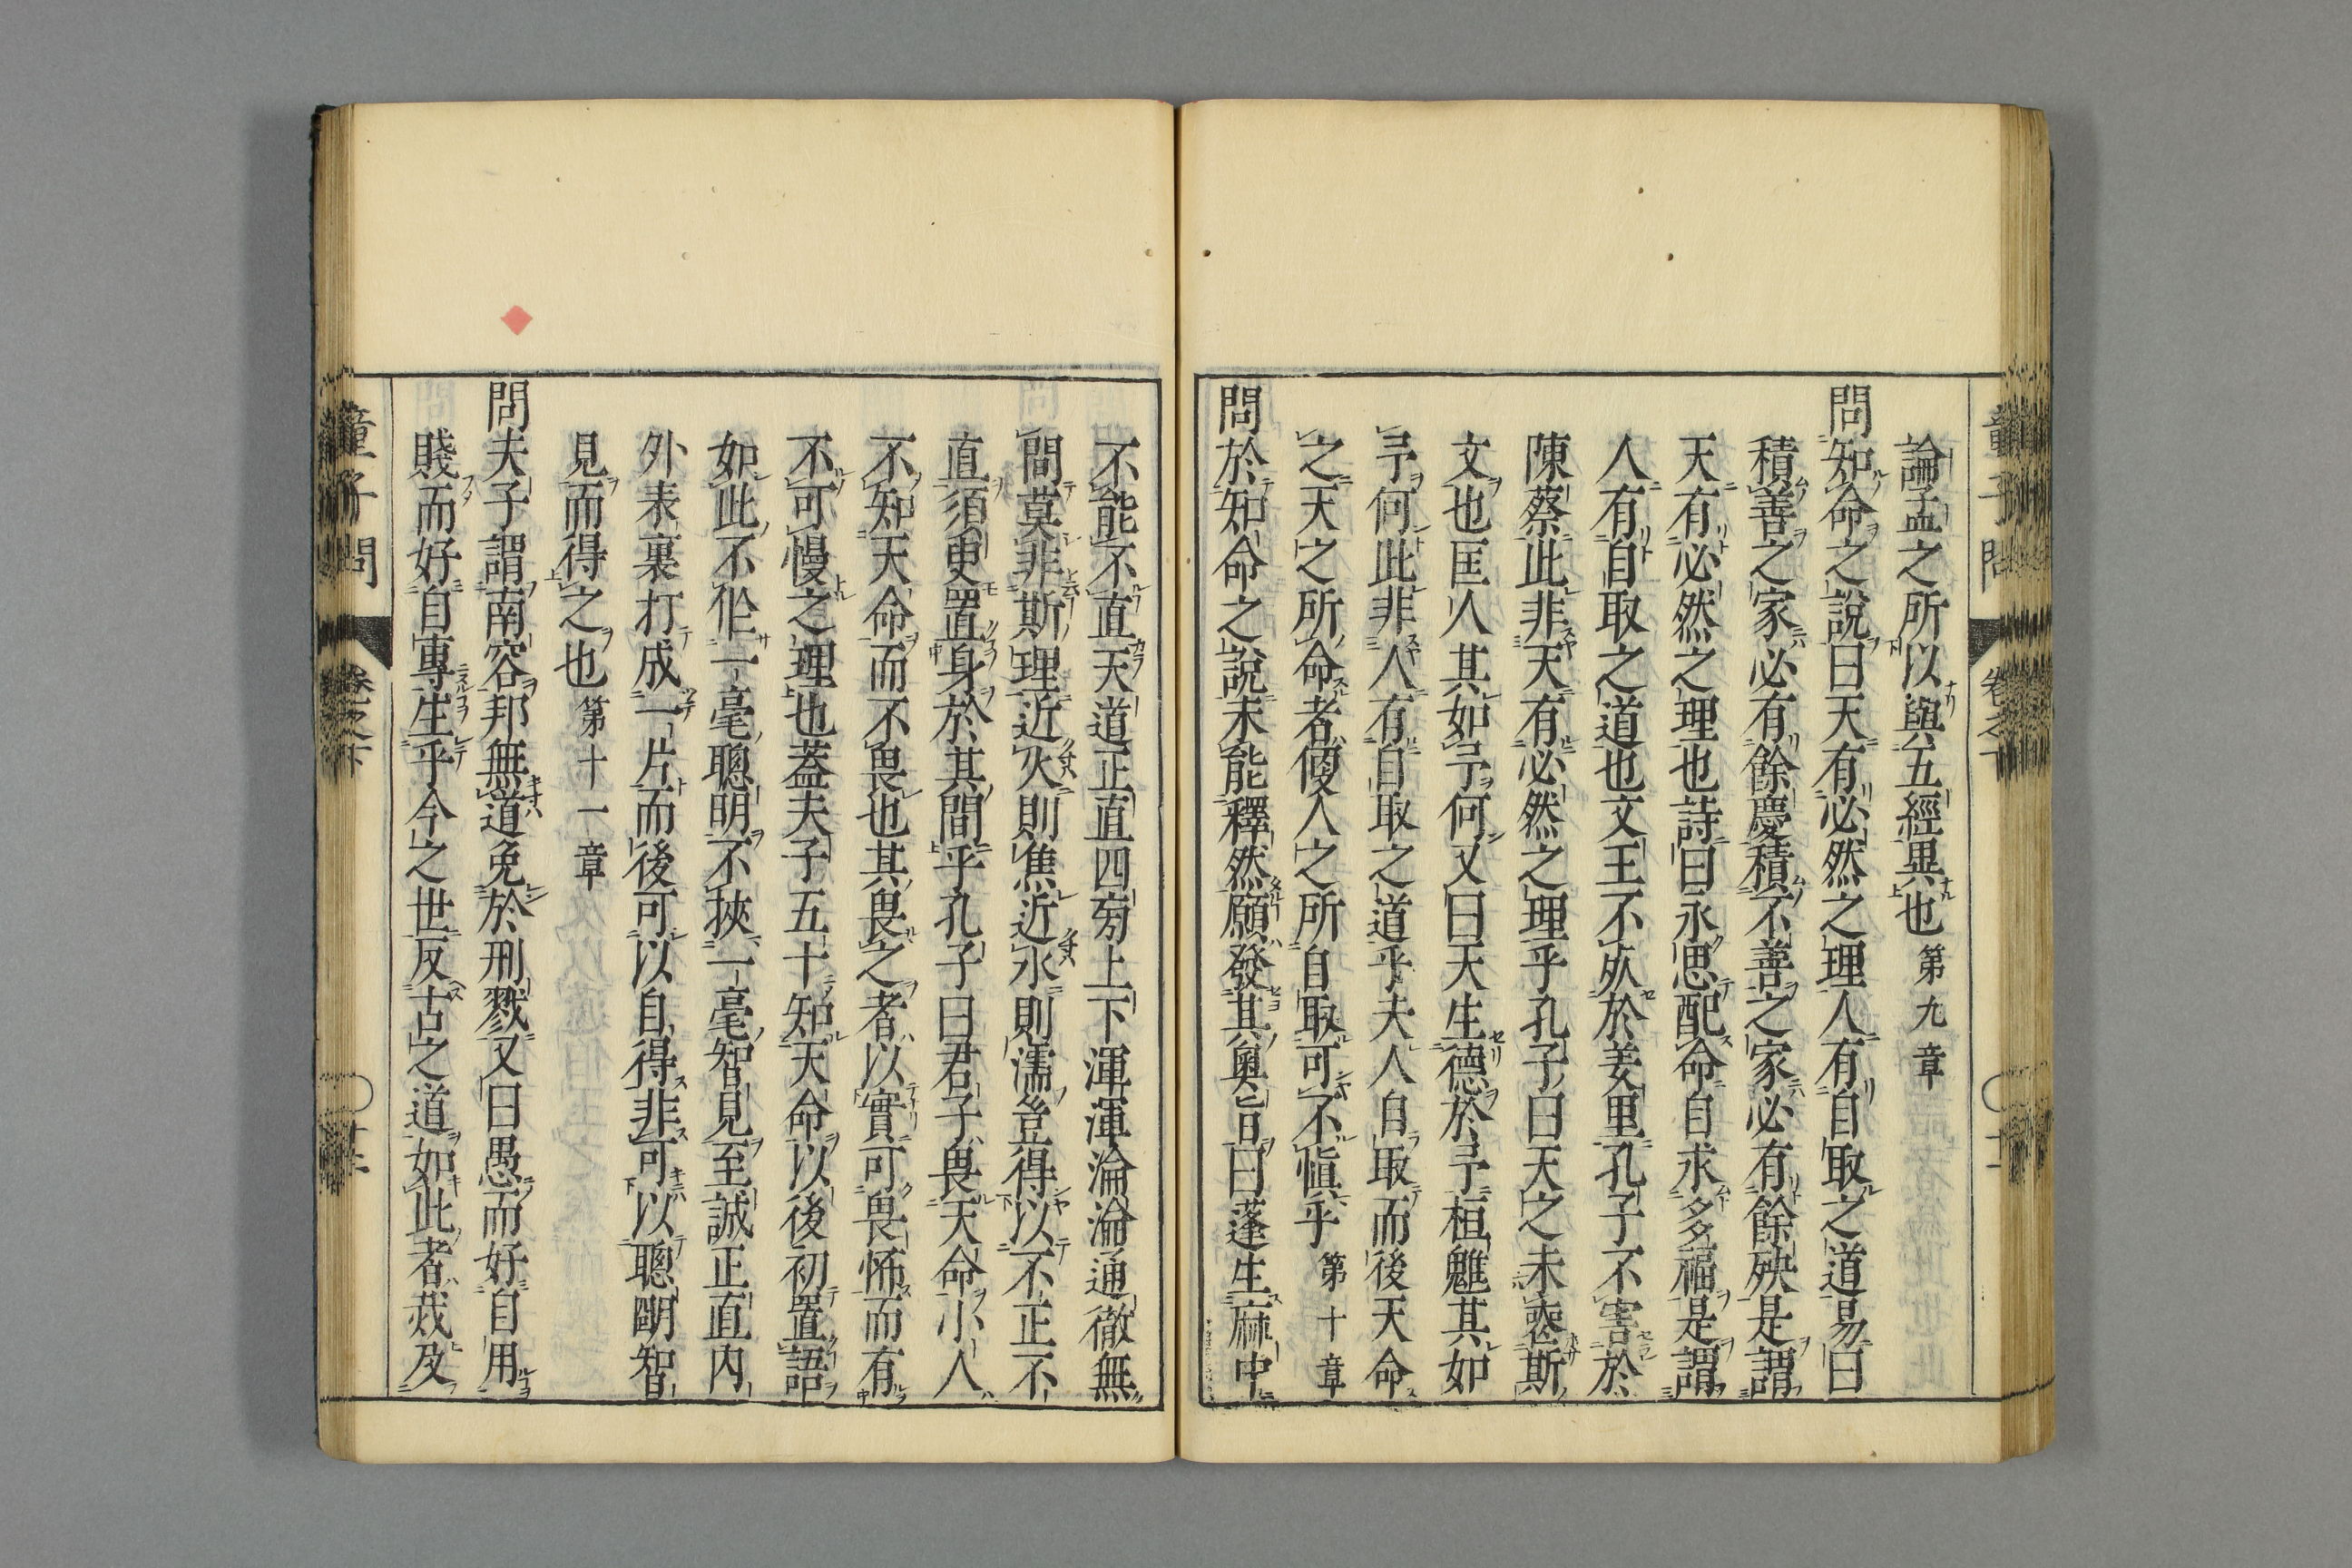 論孟之所以與五經異也 第九章
問知命之說曰天有必然之理人有自取之道易曰
積善之家必有餘慶積不善之家必有餘殃是謂
天有必然之理也詩曰永思配命自求多福是謂
人有自取之道也文王不死於姜里孔子不害於
陳蔡此非天有必然之理乎孔子曰天之未喪斯
文也匡人其如予何又曰天生德於予桓魋其如
予何此非人有自取之道乎夫人自取而後天命
之天之所命者便人之所自取可不愼乎 第十章
問於知命之說未能釋然願發其奧旨曰蓬生麻中
不能不直天道正直四旁上下渾渾淪淪通徹無
間莫非斯理近火則焦近水則濡豈得以不正不
直須臾置身於其間乎孔子曰君子畏天命小人
不知天命而不畏也其畏之者以實可畏怖而有
不可慢之理也蓋夫子五十知天命以後初置語
如此不作一毫聰明不挾一毫智見至誠正直內
外表裏打成一片而後可以自得非可以聰明智
見而得之也 第十一章
問夫子謂南容邦無道免於刑戮又曰愚而好自用
賤而好自專生乎今之世反古之道如此者烖及
童子問 卷之下
童子問 卷之下